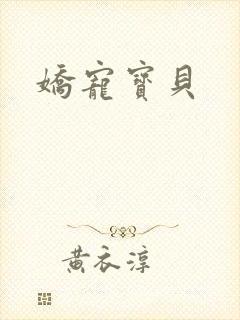 嬌寵寶貝
黃衣淳